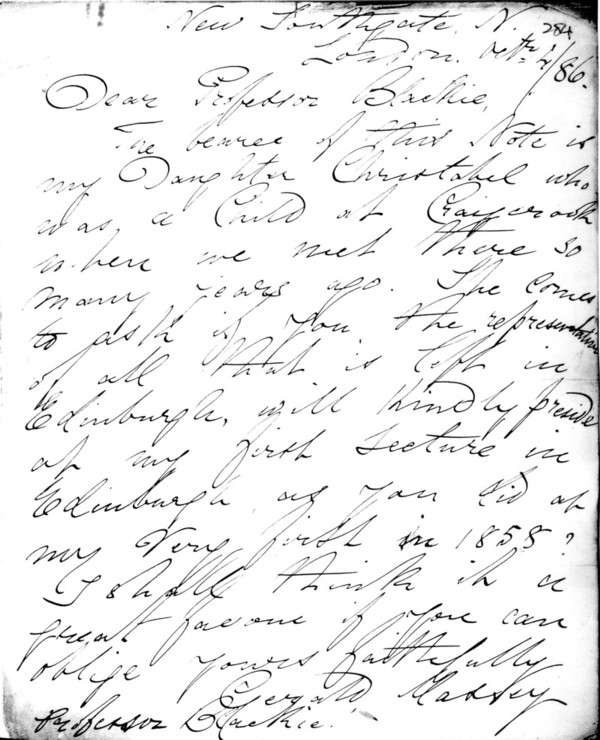 New Southgate, N.
284
London. Octr 4/86.
Dear Professor Blackie,
The bearer of this Note is
my Daughter Christabel who
was a Child at Craigcrook
when we met there so
many years ago. She comes
to ask if you the representative
of all that is left in
Edinburgh, will kindly preside
at my first Lecture in
Edinburgh as you did at
my Very first in 1858?
I shall think it a
great favour if you can
oblige yours faithfully
Gerald Massey
Professor Blackie.